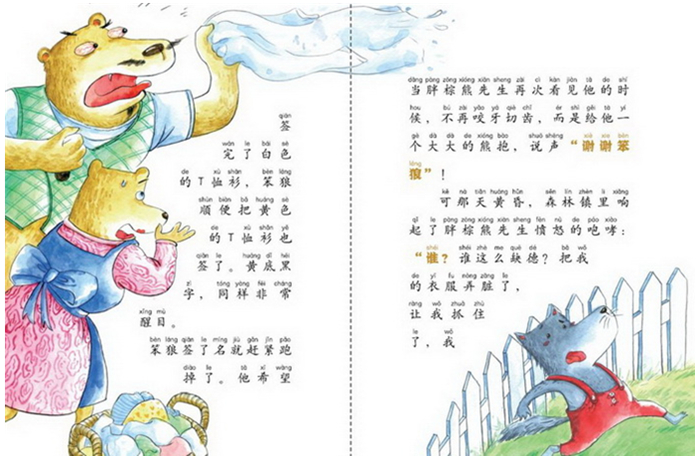 签
完了白色
的T恤衫，笨狼
顺便把黄色
的T恤衫也
签了。黄底黑
字，同样非常
醒目。
笨狼签了名就赶紧跑
掉了。他希望
当胖棕熊先生再次看见他的时
候，不再咬牙切齿，而是给他一
个大大的熊抱，说声“谢谢笨
狼”！
可那天黄昏，森林镇里响
起了胖棕熊先生愤怒的咆哮：
“谁？谁这么缺德？把我
的衣服弄脏了，
让我抓住
了，我